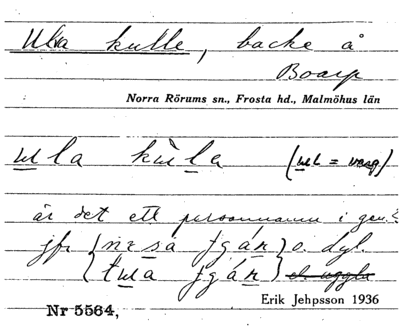 Ula kulle, backe å
Boarp
Norra Rörums sn., Frosta hd., Malmöhus län
ula kùla (ul = varg)
är det ett personnamn i gen.?
jfr {nɪsa jgán} o. dyl.
{tua jgán} el. uggla
Nr 5564, Erik Jehpsson 1936